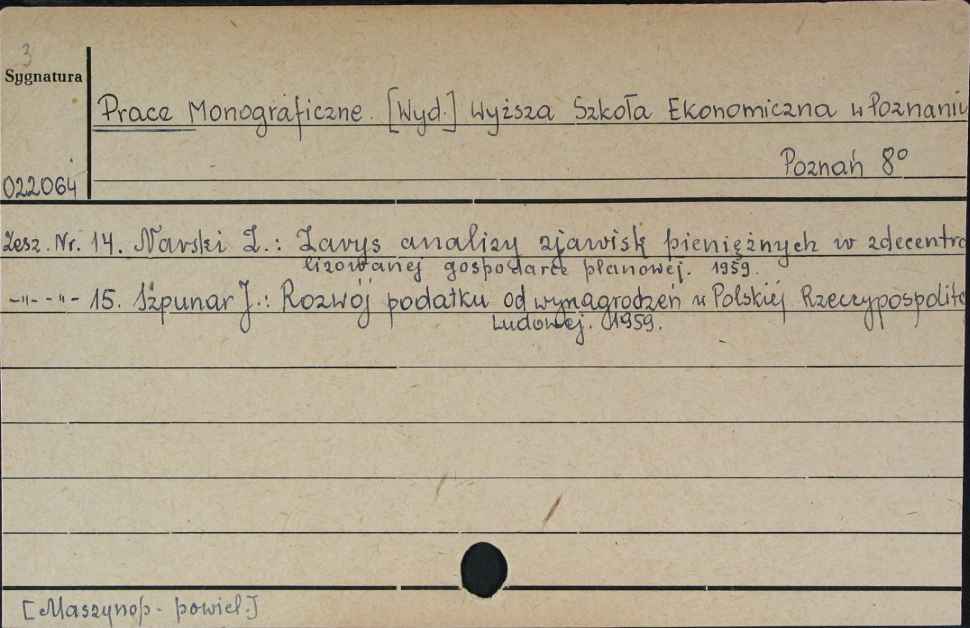 3
Sygnatura
Prace Monograficzne. [Wyd.] Wyższa Szkoła Ekonomiczna w Poznaniu
Poznań 8°
022064
Zesz. Nr. 14. Narski Z.: Zarys analizy zjawisk pieniężnych w zdecentra
lizowanej gospodarce planowej. 1959.
-"- -"- 15. Szpunar J.: Rozwój podatku od wynagrodzeń w Polskiej Rzeczypospolite
Ludowej. 1959.
[Maszynop- powiel.]